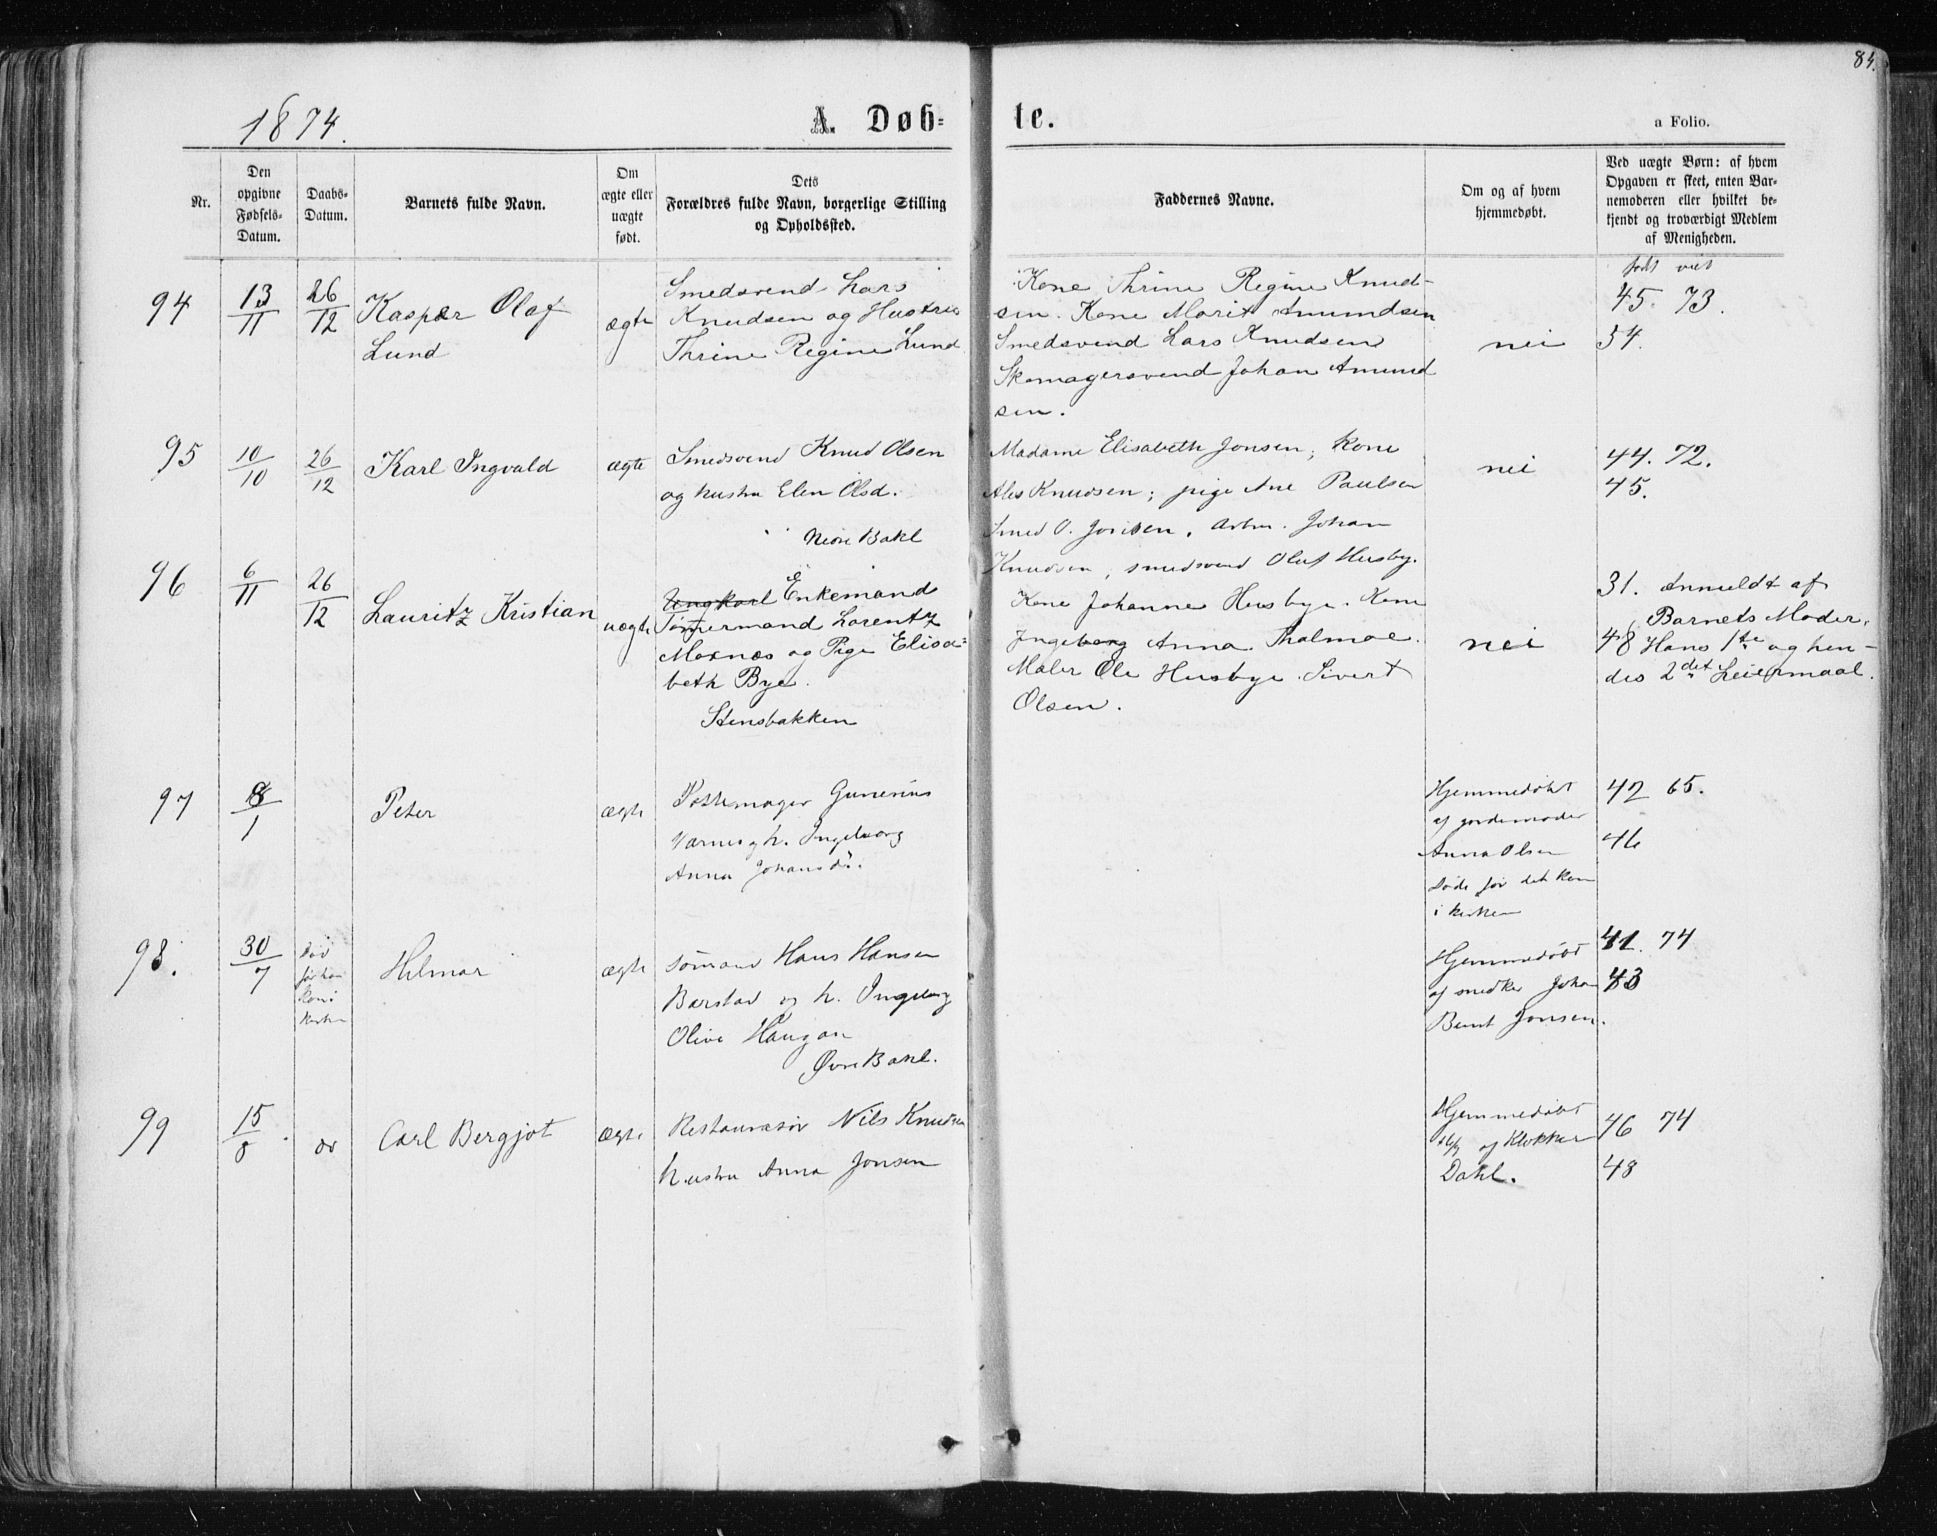 84.
1874.
A Døb=
te.
a Folio.
Nr.
Den
opgivne
Fødsels-
Datum.
Daabs-
Datum.
Barnets fulde Navn.
Om
ægte eller
uægte
født.
Dets
Forældres fulde Navn, borgerlige Stilling
og Opholdssted.
Faddernes Navne.
Om og af hvem
hjemmedøbt.
Ved uægte Børn: af hvem
Opgaven er skeet, enten Bar-
nemoderen eller hvilket be-
kjendt og troværdigt Medlem
af Menigheden.
94
13/11
26/12
Kasper Olaf
Lund
ægte
Smedsvend Lars
Knudsen og Hustru
Thrine Regine Lund
Kone Thrine Regine Knud-
sen. Kone Marit Amundsen
Smedsvend Lars Knudsen
Skomagersvend Johan Amund
sen.
nei
født viet
45. 73.
54.
95
10/10
26/12
Karl Ingvald
ægte
Smedsvend Knud Olsen
og hustru Elen Olsd.
Nedre Bakl
Madame Elisabeth Jonsen; Kone
Ales Knudsen; pige Ane Paulsen
Smed O. Jonsen, Arbm. Johan
Knudsen, smedsvend Oluf Husby.
nei
44. 72.
45.
96
6/11
26/12
Lauritz Kristian
uægte
Ungkarl Enkemand
Tømmermand Lorentz
Moxnæs og Pige Elisa=
beth Bye.
Stensbakken
Kone Johanne Husbye. Kone
Ingeborg Anna Thalmoe.
Maler Ole Husbye. Sivert
Olsen.
nei
31. Anmeldt af
Barnets Moder,
48 Hans 1ste og hen-
des 2det Leiermaal.
97
8/1
Peter
ægte
Pottemager Gunerius
Varnes g h. Ingeborg
Anna Johansdr.
Hjemmedøbt
af gordemoder
Anna Olsen
døde før det kom
i kirken
42 65.
46
98.
30/7
død
før han
kom i
kirken
Hilmar
ægte
Sømand Hans Hansen
Barstad og h. Ingeborg
Olive Haugan
Øvre Bakl.
Hjemmedøbt
af snedker Johan
Bernt Jonsen.
41. 74
43
99
15/8.
Carl Bergjot
ægte
Restauratør Nils Knudsen
hustru Anna Jonsen
Hjemmedøbt
af Klokker
Dahl.
46 74
48